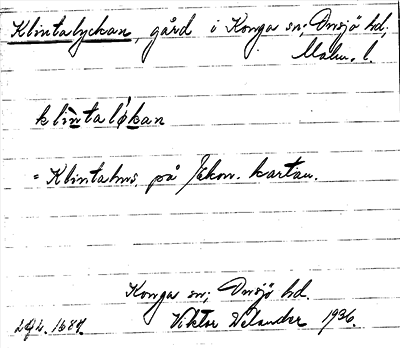 Klintalyckan, gård i Konga sn; Onsjö hd;
Malm. l.
klintaløkan
= Klintahus. på Ekon. kartan.
Konga sn; Onsjö hd.
Viktor Welander 1936.